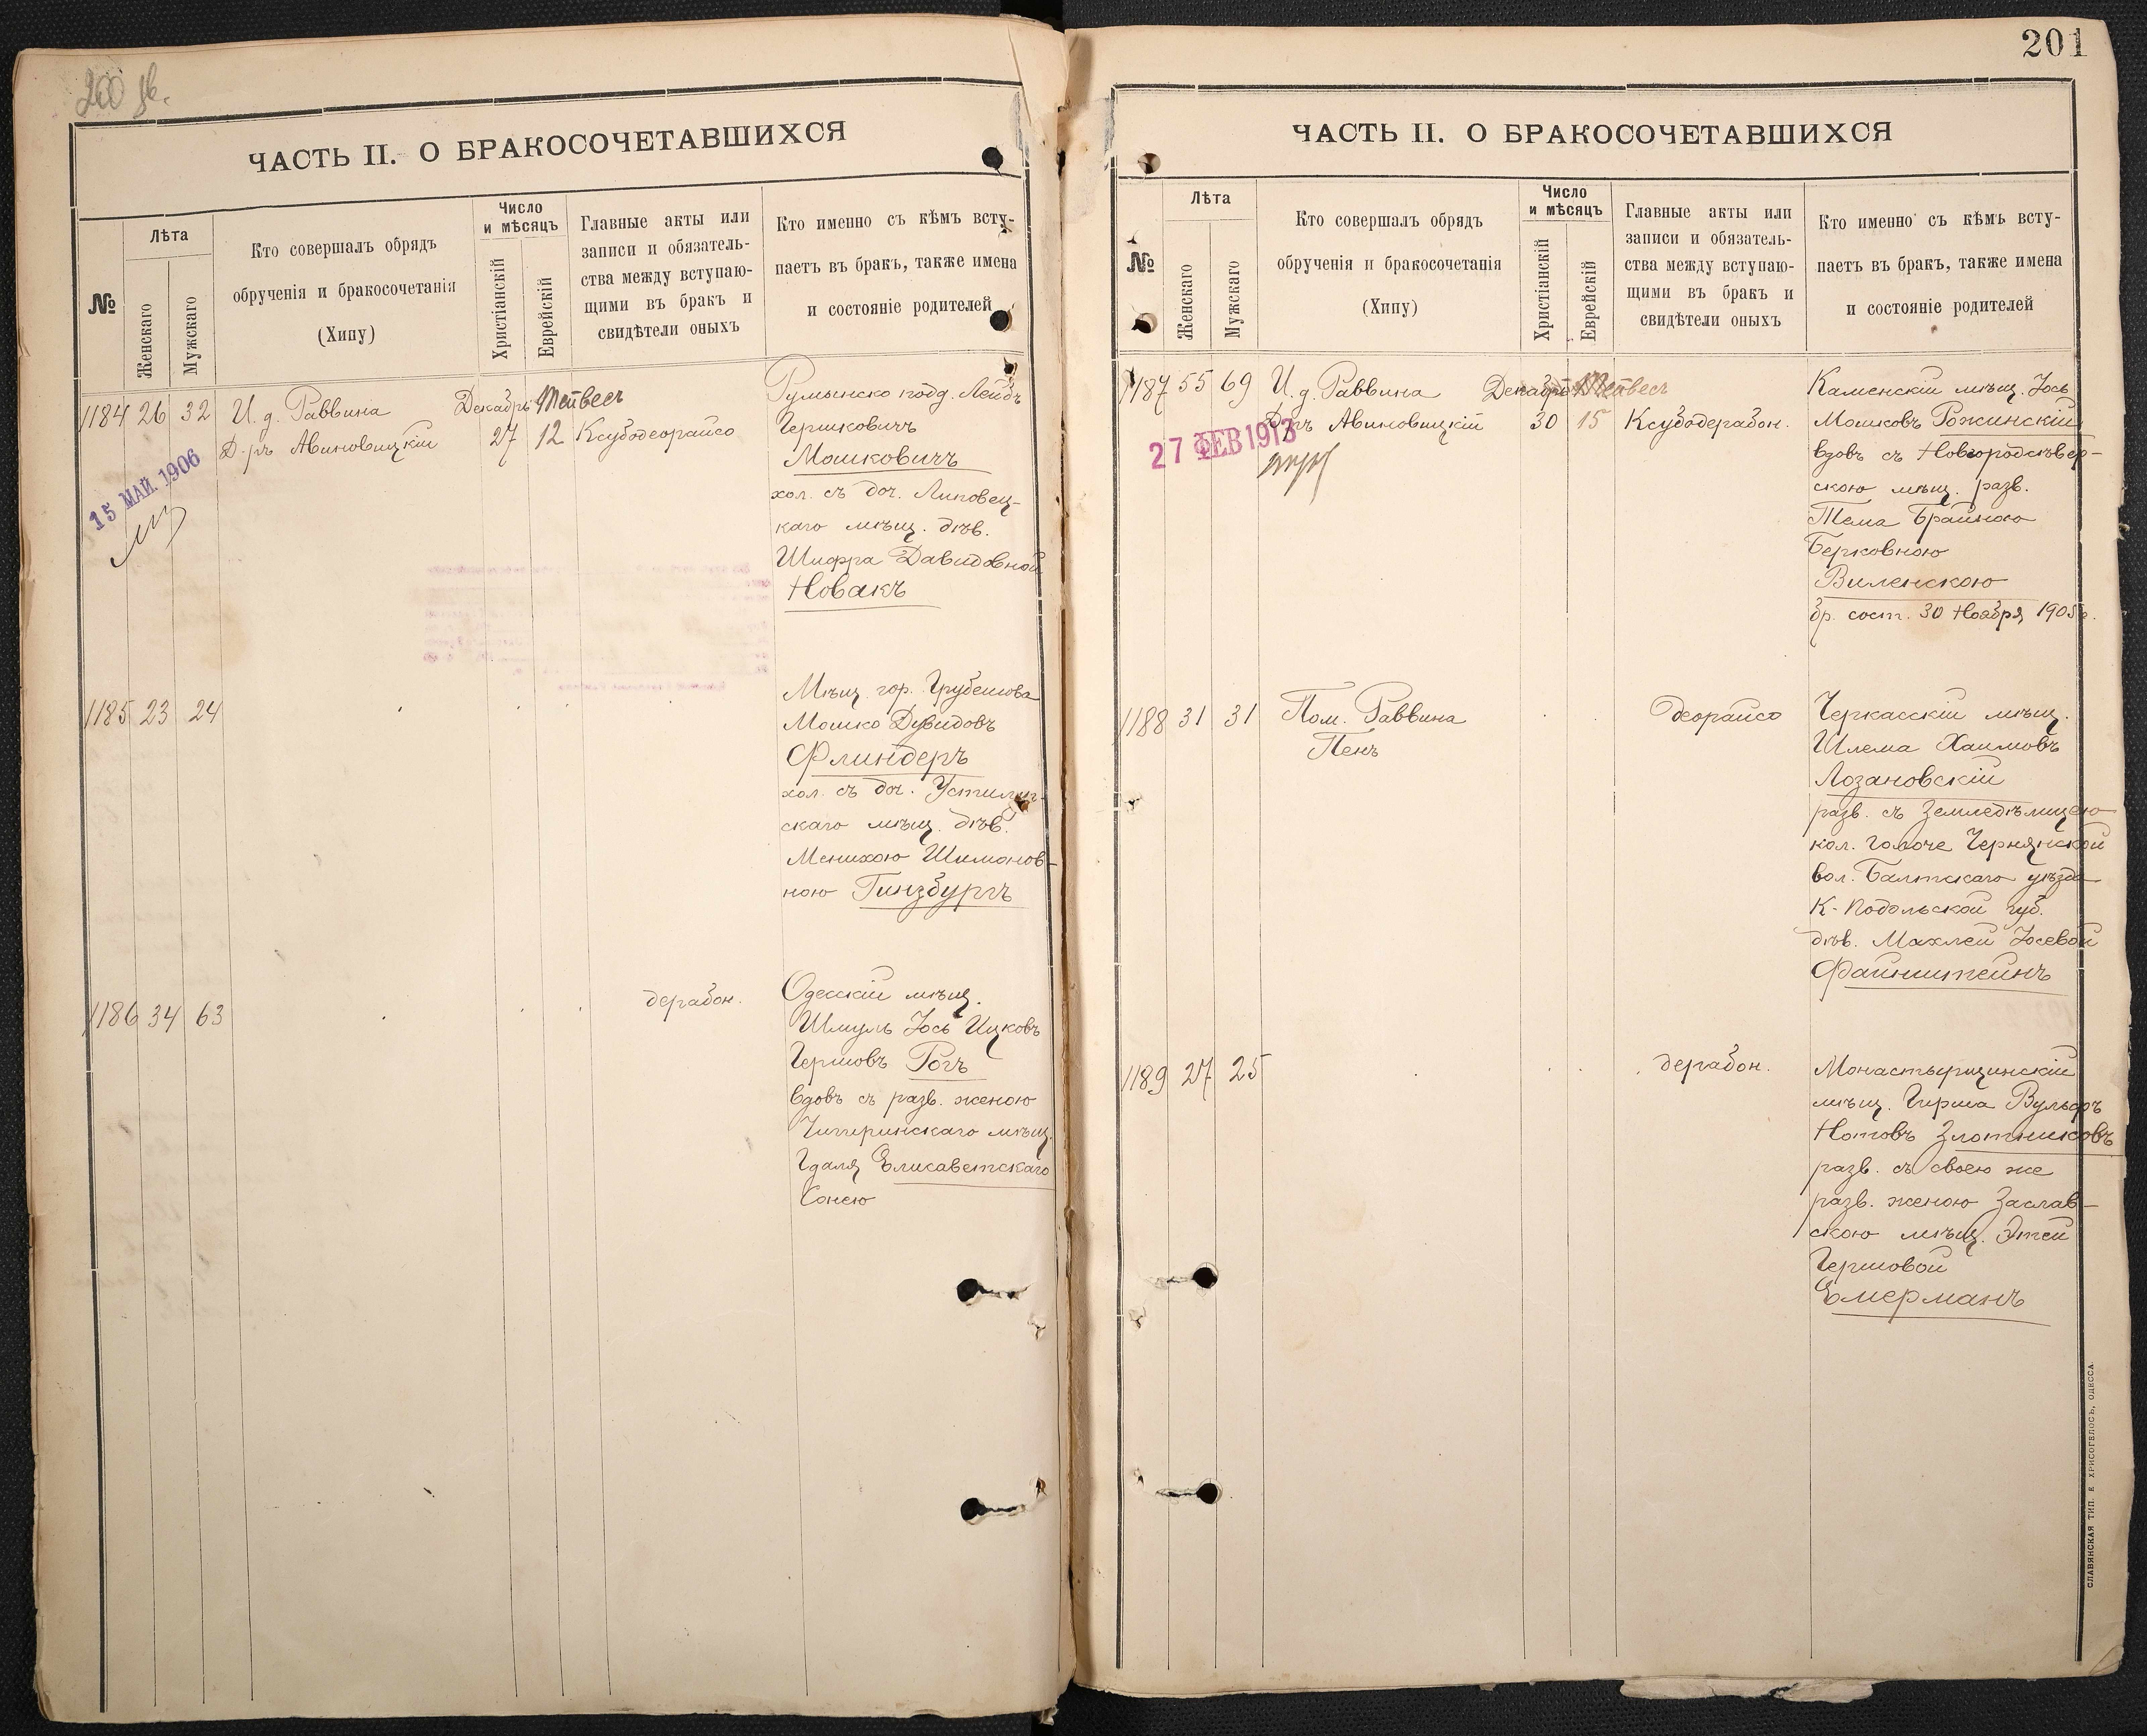 200 зв.
ЧАСТЬ II. О БРАКОСОЧЕТАВШИХСЯ
№
Лѣта
Женскаго
Мужскаго
Кто совершалъ обрядъ
обрученія и бракосочетанія
(Хипу)
Число
и мѣсяцъ
Христіанскій
Еврейскій
Главные акты или
записи и обязатель-
ства между вступаю-
щими въ бракъ и
свидѣтели оныхъ
Кто именно съ кѣмъ всту-
паетъ въ бракъ, также имена
и состояніе родителей
1184 26 32 И. д. Раввина Декабрь Тейвесъ
Д-ръ Авиновицкій 27 12 Ксубодеорайсо
15 МАЙ 1906
Румынско подд. Лейбъ
Гершковичъ
Мошковичъ
хол. съ доч. Липовец-
каго мѣщ. дѣв.
Шифра Давидовной
Новакъ
1185 23 24
Мѣщ. гор. Грубешова
Мошко Дувидовъ
Флиндеръ
хол. съ доч. Устилуг-
скаго мѣщ. дѣв.
Менихою Шимонов-
ною Гинзбургъ
1186 34 63 дерабон.
Одесскій мѣщ.
Шмуль Іось Ицковъ
Гершовъ Рогъ
вдовъ съ разв. женою
Чигиринскаго мѣщ.
Гдаля Елисаветскаго
Сонею
201
ЧАСТЬ II. О БРАКОСОЧЕТАВШИХСЯ
№
Лѣта
Женскаго
Мужскаго
Кто совершалъ обрядъ
обрученія и бракосочетанія
(Хипу)
Число
и мѣсяцъ
Христіанскій
Еврейскій
Главные акты или
записи и обязатель-
ства между вступаю-
щими въ бракъ и
свидѣтели оныхъ
Кто именно съ кѣмъ всту-
паетъ въ бракъ, также имена
и состояніе родителей
1187 55 69 И. д. Раввина Декабрь Тейвесъ
Д-ръ Авиновицкій 30 15 Ксубодерабон.
27 ФЕВ 1913
Каменскій мѣщ. Іось
Мошковъ Рожинскій
вдовъ съ Новгородсѣвер-
скою мѣщ. разв.
Тема Брайною
Берковною
Виленскою
бр. сост. 30 Ноября 1905 г.
1188 31 31 Пом. Раввина деорайсо
Пенъ
Черкасскій мѣщ.
Шлема Хаимовъ
Лозановскій
разв. съ Земледѣлицею
кол. Голоче Чернянской
вол. Балтскаго уѣзда
К-Подольской губ.
дѣв. Махлей Іосевой
Файнштейнъ
1189 27 25 дерабон.
Монастырщинскій
мѣщ. Гирша Вульфъ
Нотовъ Злотниковъ
разв. съ своею же
разв. женою Заслав-
скою мѣщ. Этей
Гершовой
Емерманъ
СЛАВЯНСКАЯ ТИП. Е. ХРИСОГЕЛОСЪ, ОДЕССА.